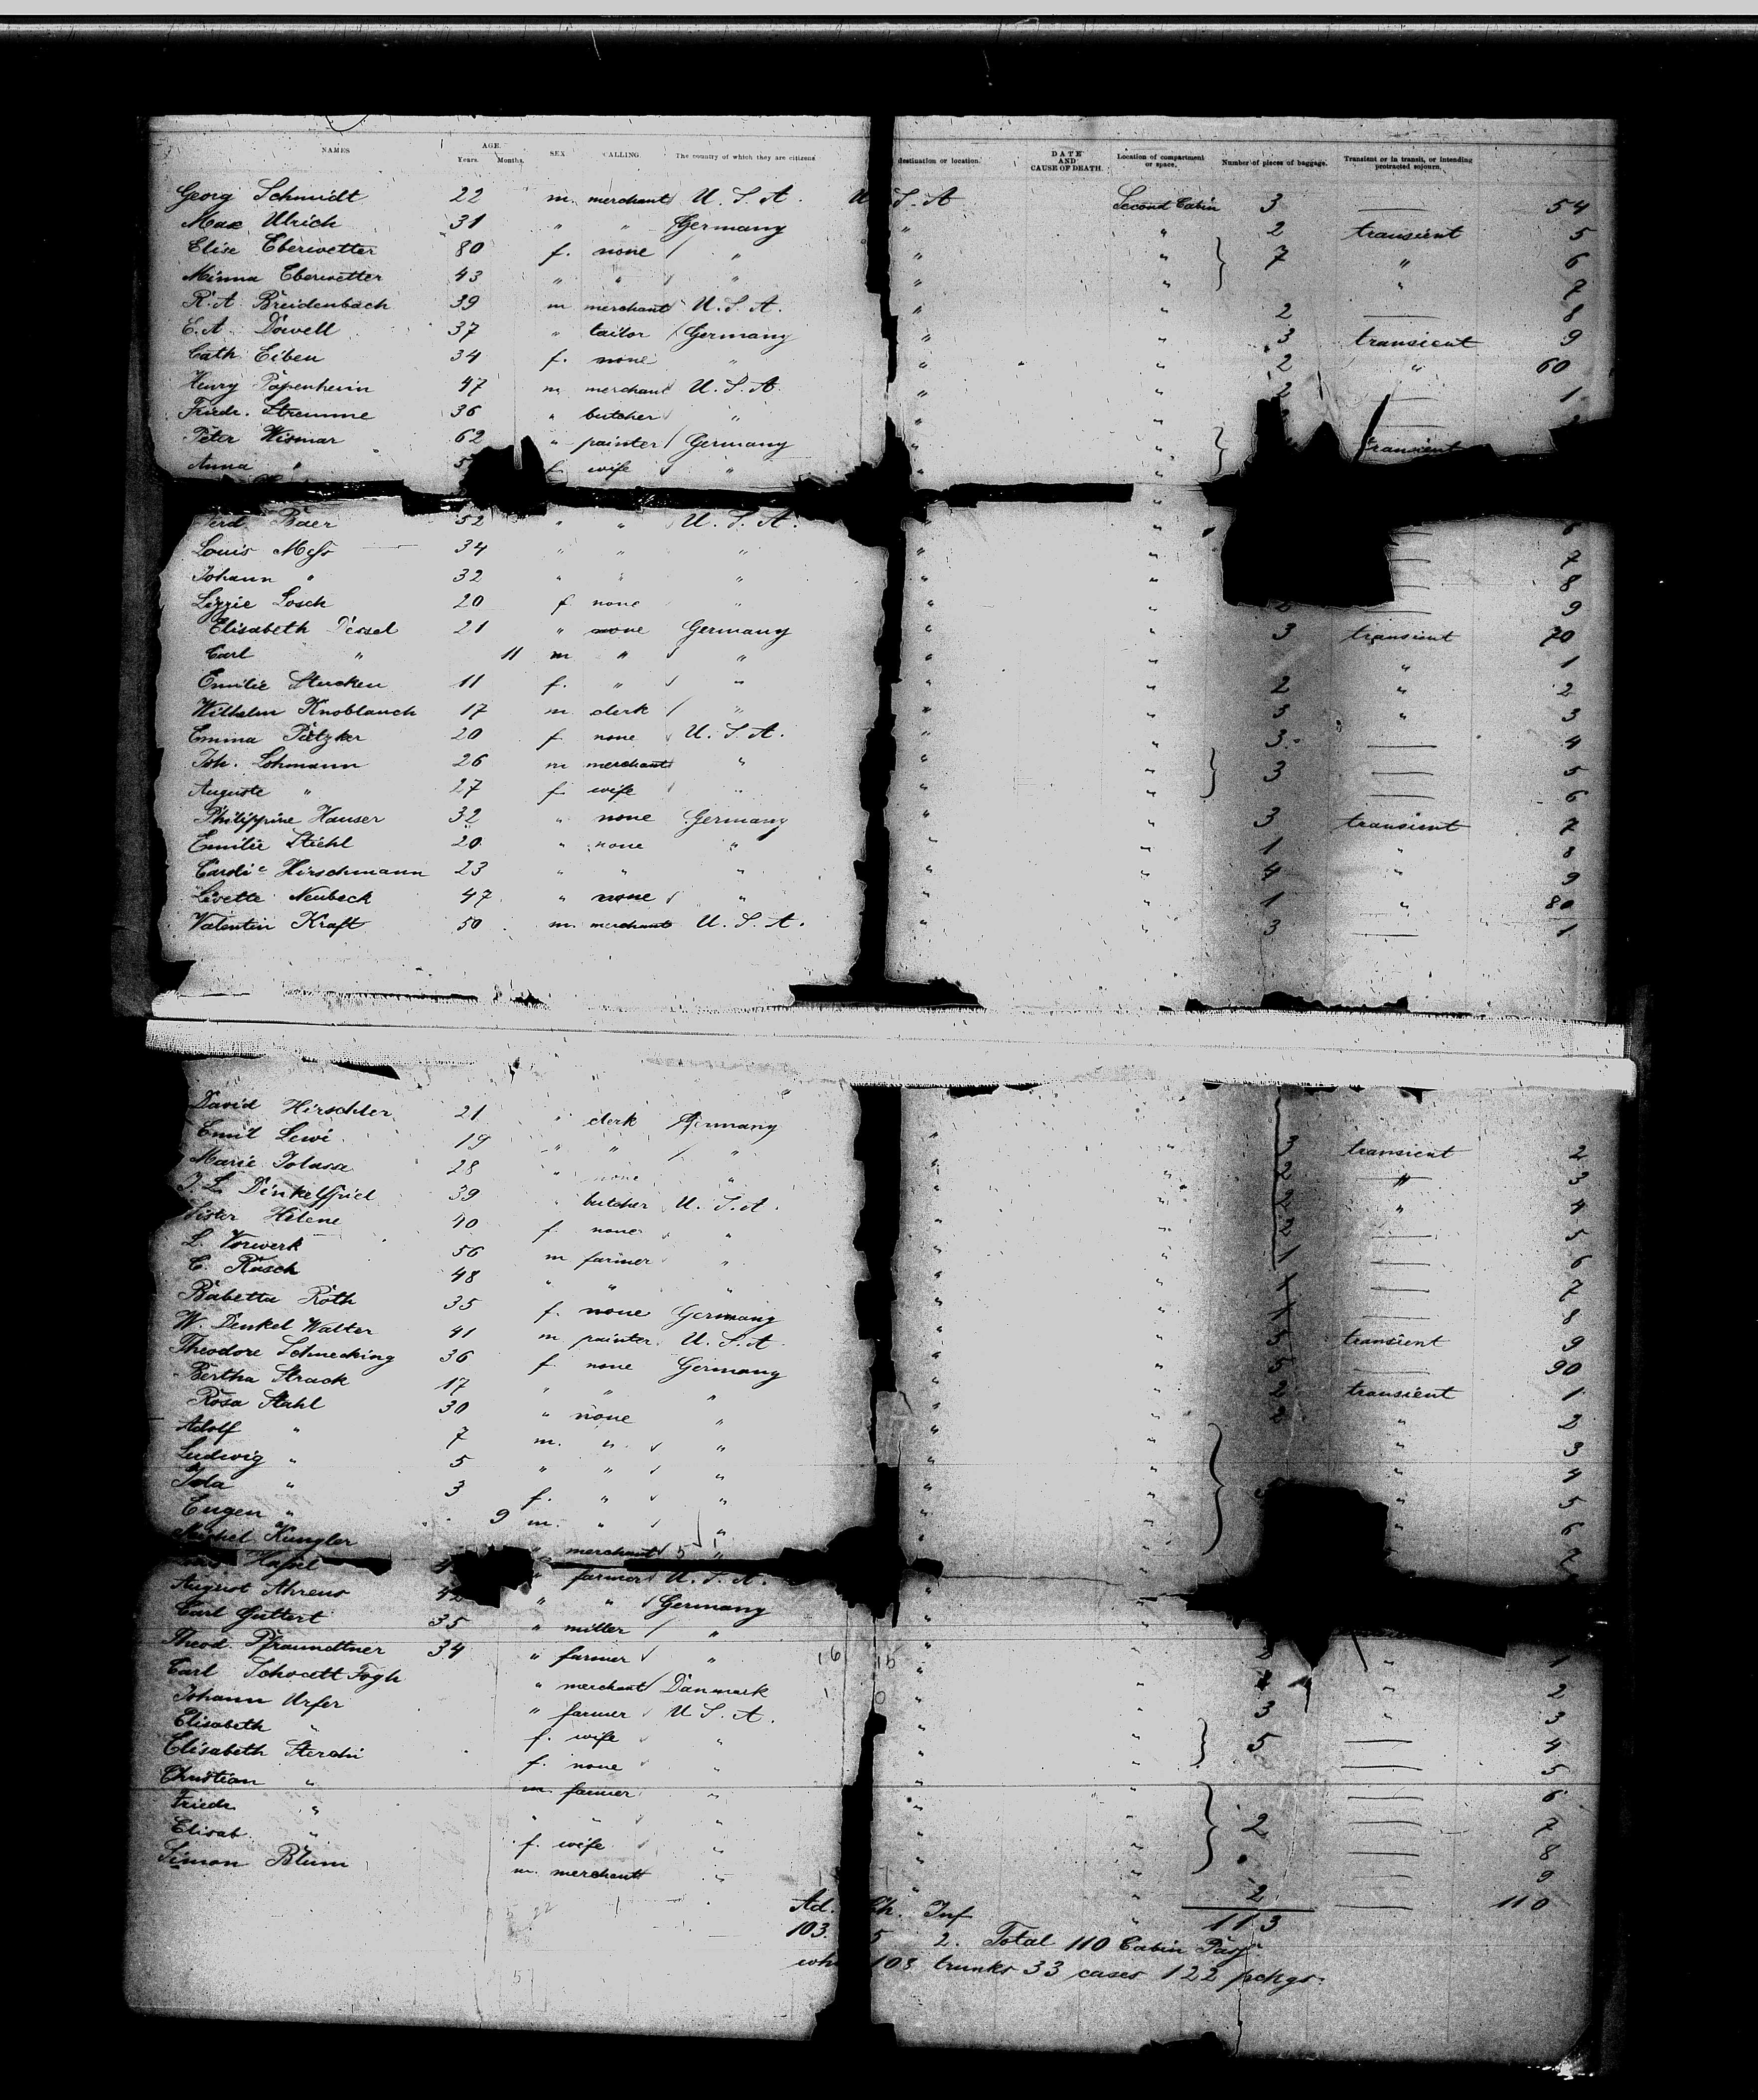 NAMES AGE. Years. Months. SEX CALLING. The country of which they are citizens destination or location. DATE AND CAUSE OF DEATH. Location of compartment or space. Number of pieces of baggage. Transient or in transit, or intending protracted sojourn.
Georg Schmidt 22 m. merchant U. S. A. U. S. A Second Cabin 3 — 54
Max Ulrich 31 " " Germany " " 2 transient 5
Elise Eberwetter 80 f. none " " " 7 " 6
Minna Eberwetter 43 " " " " " " 7
R. A. Breidenbach 39 m merchant U. S. A. " " 2 — 8
E. A. Dowell 37 " tailor Germany " " 3 transient 9
Cath. Eiben 34 f. none " " " 2 " 60
Henry Papenheim 47 m merchant U. S. A. " " 2 — 1
Friedr. Stremme 36 " butcher " " " —
Peter Wismar 62 " painter Germany " " transient
Anna " f wife " " "
Ferd. Baer 52 " " U. S. A. " " — 6
Louis 34 " " " " " — 7
Johann " 32 " " " " " — 8
Lizzie Losch 20 f none " " " — 9
Elisabeth 21 " none Germany " " 3 transient 70
Carl " 11 m " " " " " 1
Emilie Stucken 11 f. " " " " 2 " 2
Wilhelm Knoblauch 17 m clerk " " " 3 " 3
Emma 20 f none U. S. A. " " 3 — 4
Joh. Lohmann 26 m merchant " " " 3 — 5
Auguste " 27 f wife " " " — 6
Philippine Hauser 32 " none Germany " " 3 transient 7
Emilie Stiehl 20 " none " " " 1 " 8
Hirschmann 23 " " " " " 4 " 9
Livette Neubeck 47 " none " " " 1 " 80
Valentin Kraft 50 m. merchant U. S. A. " " 3 — 1
David Hirschler 21 " clerk Germany " " 3 transient 2
Emil Lewi 19 " " " " " 2 " 3
Marie 28 " none " " " 2 " 4
39 butcher U. S. A. " " — 5
Sister Helene 40 f. none " " " 1 — 6
L. Vorwerk 56 m farmer " " " 1 — 7
C. Rasch 48 " " " " " 1 — 8
Babetta Roth 35 f. none Germany " " 5 transient 9
W. Denkel Walter 41 m painter U. S. A. " " 5 — 90
Theodore Schnecking 36 f. none Germany " " 2 transient 1
Bertha Strack 17 " " " " " 2 " 2
Rosa Stahl 30 " none " " " " 3
Adolf " 7 m. " " " " " 4
Ludwig " 5 " " " " " " 5
Ida " 3 f. " " " " " 6
Eugen " 9 m. " " " " 7
Michel Kungler " merchant "
farmer U. S. A.
August Ahrens 42 " " Germany "
Carl Guttert 35 " miller " "
Theod. Pfraundtner 34 " farmer " " " 1
Carl Schoett Fogh " merchant Danmark " " " 2
Johann Urfer " farmer U. S. A. " " 3 " 3
Elisabeth " f. wife " " " 5 — 4
Elisabeth f. none " " " — 5
Christian " m farmer " " " — 6
Friedr. " " " " " " 2 — 7
Elisab. " f. wife " " " — 8
Simon Blum m. merchant " " " 2 — 9
— 110
113
Ad. Ch. Inf
103. 5 2. Total 110 Cabin
108 trunks 33 cases 122 pckgs.